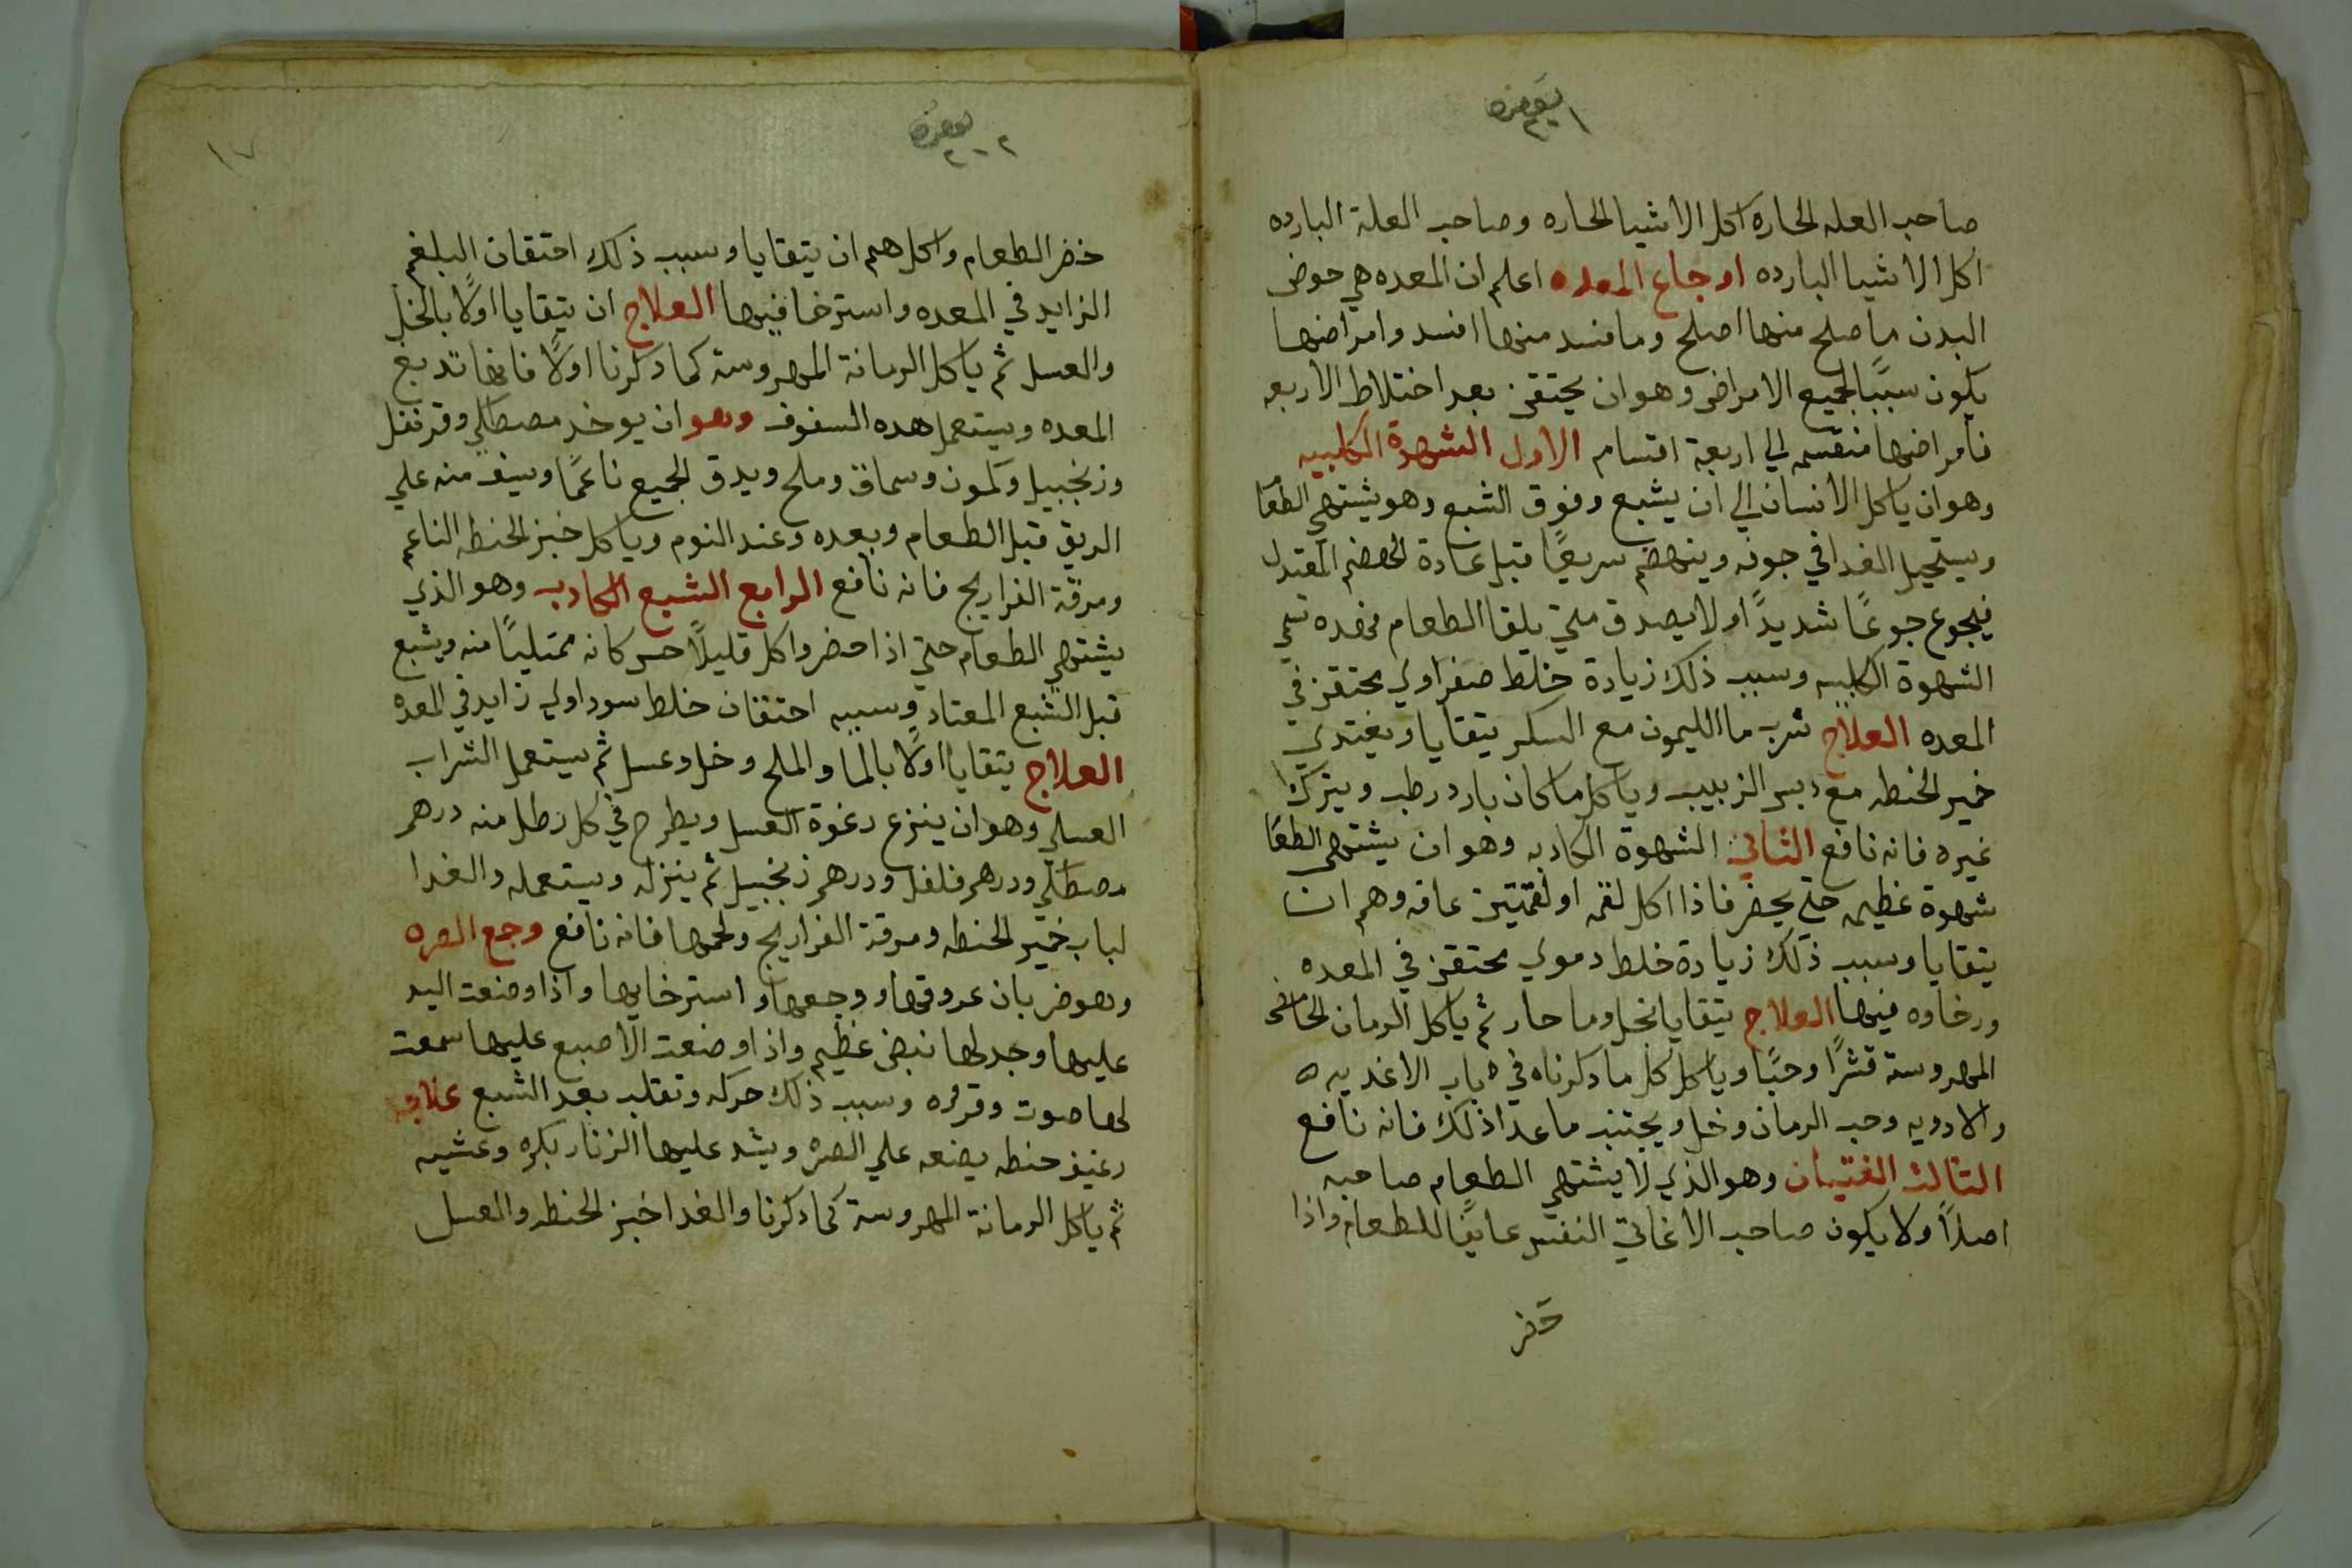 صاحب العله الحاره اكل الاشيا الحاره وصاحب العلة البارده
اكل الاشيا البارده اوجاع المعده اعلم ان المعده هي حوض
البدن ما صلح منها اصلح وما فسد منها افسد وامراضها
يكون سببًا لجميع الامراض وهو ان يحتقن بعد اختلاط الاربعه
فامراضها منقسمه الي اربعة اقسام الاول الشهوة الكلبيه
وهو ان ياكل الانسان الي ان يشبع وفوق الشبع وهو يشتهي الطعا
ويستحيل الغدا في جوفه وينهضم سريعًا قبل عادة الهضم المعتدل
فيجوع جوعًا شديدًا ولا يصدق متي يلقا الطعام فهده تسمي
الشهوة الكلبيه وسبب ذلك زيادة خلط صفراوي محتقن في
المعده العلاج شرب ما الليمون مع السكر يتقايا ويغتدي
خمير الحنطه مع دبس الزبيب وياكل ما كان بارد رطب ويترك
غيره فانه نافع الثاني الشهوة الكادبه وهو ان يشتهي الطعا
شهوة عظيمه حتي يحضر فاذا اكل لقمه او لقمتين عافه وهم ان
يتقايا وسبب ذلك زيادة خلط دموي محتقن في المعده
ورخاوه فيها العلاج يتقايا بخل وما حار ثم ياكل الرمان الحامض
المهروسة قشرًا وحبًا وياكل كل ما دكرناه في باب الاغديه
والادويه وحب الرمان وخل ويجتنب ما عدا ذلك فانه نافع
التالت الغتيان وهو الذي لا يشتهي الطعام صاحبه
اصلاً ولا يكون صاحب الاغاتي النفس عايفًا للطعام واذا
حضر
خضر الطعام واكل هم ان يتقايا وسبب ذلك احتقان البلغم
الزايد في المعده واسترخا فيها العلاج ان يتقايا اولًا بالخل
والعسل ثم ياكل الرمانة المهروسة كما دكرنا اولًا فانها تدبغ
المعده ويستعمل هده السفوف وهو ان يوخد مصطكي وقرنفل
وزنجبيل وكمون وسماق وملح ويدق الجميع ناعمًا ويسف منه علي
الريق قبل الطعام وبعده وعند النوم وياكل خبز الحنطه الناعم
ومرقة الفراريج فانه نافع الرابع الشبع الكادب وهو الذي
يشتهي الطعام حتي اذا حضر واكل قليلًا حس كانه ممتليًا منه ويشبع
قبل الشبع المعتاد وسببه احتقان خلط سوداوي زايد في المعده
العلاج يتقايا اولًا بالما والملح وخل وعسل ثم يستعمل الشراب
العسلي وهو ان ينزع رغوة العسل ويطرح في كل رطل منه درهم
مصطكي ودرهم فلفل ودرهم زنجبيل ثم ينزله ويستعمله والغدا
لباب خمير الحنطه ومرقة الفراريج ولحمها فانه نافع وجع الصره
وهو ضربان عروقها ووجعها واسترخايها واذا وضعت اليد
عليها وجد لها نبض عظيم واذا وضعت الاصبع عليها سمعت
لها صوت وقرقره وسبب ذلك حركه وتقلب بعد الشبع علاجه
رغيف حنطه يضعه علي الصره ويشد عليها الزنار بكره وعشيه
ثم ياكل الرمانة المهروسة كما دكرنا والغدا خبز الحنطه والعسل